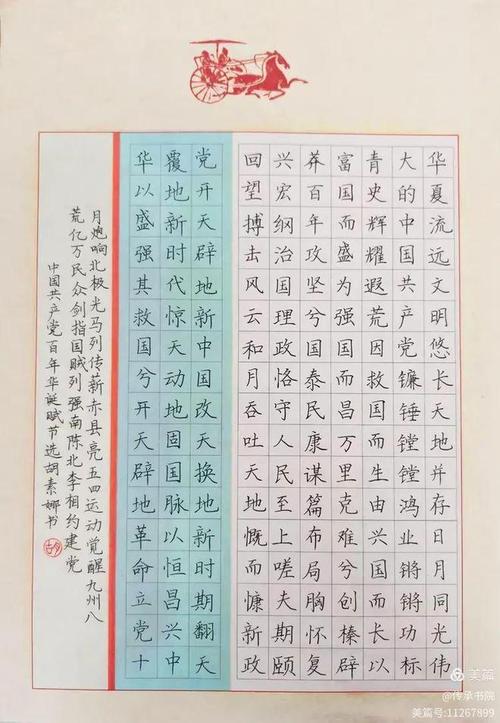 华夏流远文明悠长天地并存日月同光伟
大的中国共产党镰锤镗镗鸿业锵锵功标
青史辉耀遐荒因救国而生由兴国而长以
富国而盛为强国而昌万里克难兮创榛辟
莽百年攻坚兮国泰民康谋篇布局胸怀复
兴宏纲治国理政恪守人民至上嗟夫期颐
回望搏击风云和月吞吐天地慨而慷新政
党开天辟地新中国改天换地新时期翻天
覆地新时代惊天动地固国脉以恒昌兴中
华以盛强其救国兮开天辟地革命立党十
月炮响北极光马列传薪赤县亮五四运动觉醒九州八
荒亿万民众剑指国贼列强南陈北李相约建党
中国共产党百年华诞赋节选胡素娜书
美篇
@传承书院
美篇号:11267899